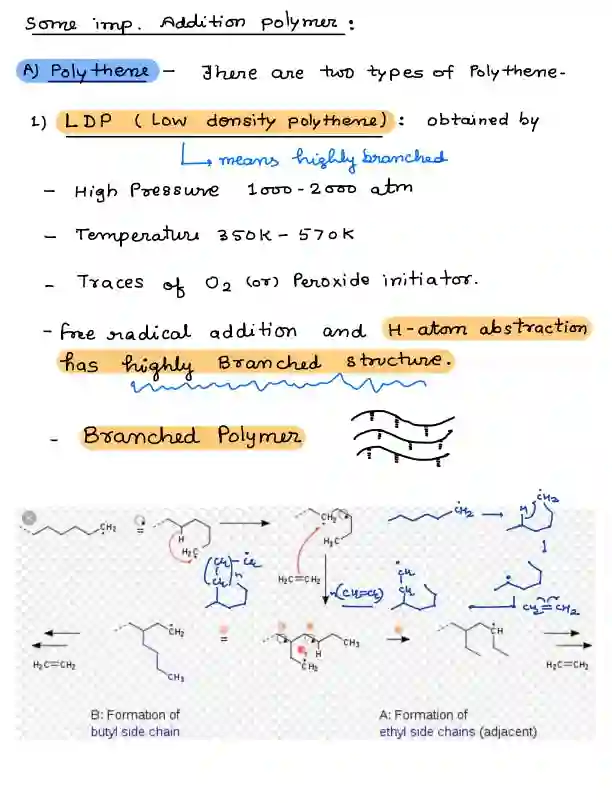 Some imp. Addition polymer :
A) Polythene - There are two types of Polythene-
1) LDP ( Low density polythene) : obtained by
means highly branched
- High Pressure 1000-2000 atm
- Temperature 350K - 570K
- Traces of O2 (or) Peroxide initiator.
- free radical addition and H-atom abstraction
has highly Branched structure.
- Branched Polymer
ĊH2
H
H2C
ĊH2
H3C
ĊH2
H
ĊH2
H2C=CH2
CH2=CH2
H2C=CH2
ĊH2
CH3
H
CH3
ĊH2
ĊH
H2C=CH2
B: Formation of
butyl side chain
A: Formation of
ethyl side chains (adjacent)